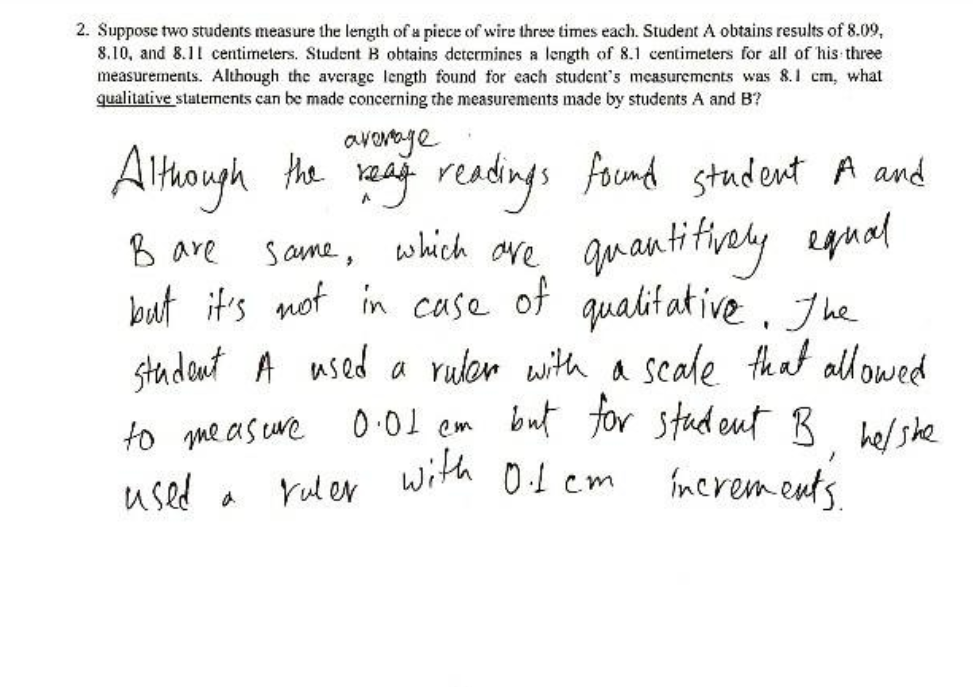 2. Suppose two students measure the length of a piece of wire three times each. Student A obtains results of 8.09,
8.10, and 8.11 centimeters. Student B obtains determines a length of 8.1 centimeters for all of his three
measurements. Although the average length found for each student's measurements was 8.1 cm, what
qualitative statements can be made concerning the measurements made by students A and B?
average
Although the readings found student A and
B are same, which are quantitively equal
but it's not in case of qualitative. The
student A used a ruler with a scale that allowed
to measure 0.01 cm but for student B, he/she
used a ruler with 0.1 cm increments.